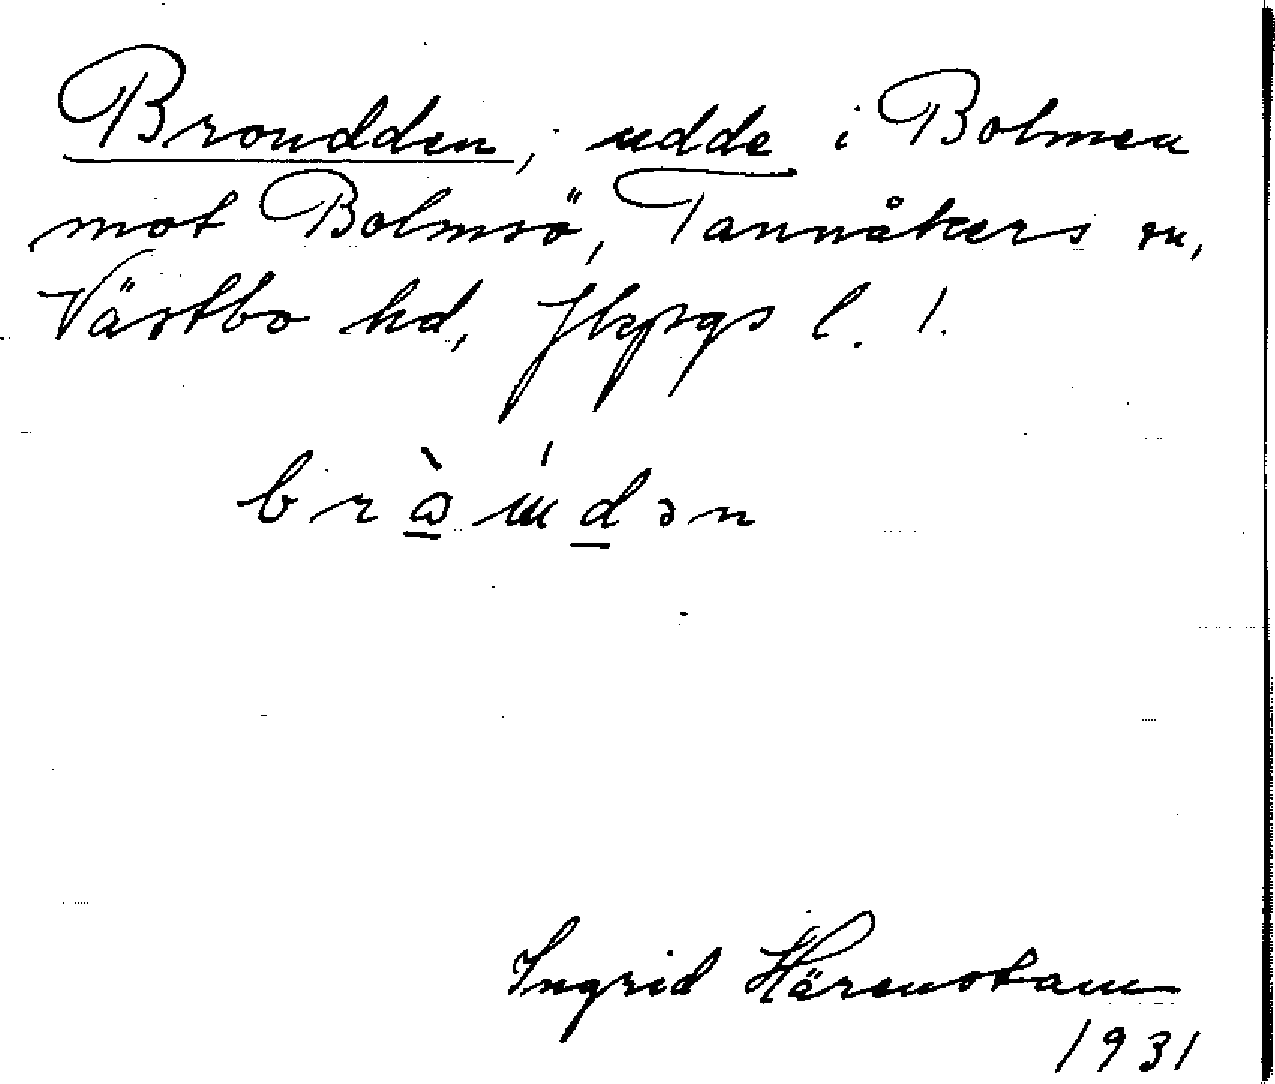 Broudden, udde i Bolmen
mot Bolmsö, Tannåkers sn,
Västbo hd, Jkpgs l. 1.
Ingrid Härenstam
1931